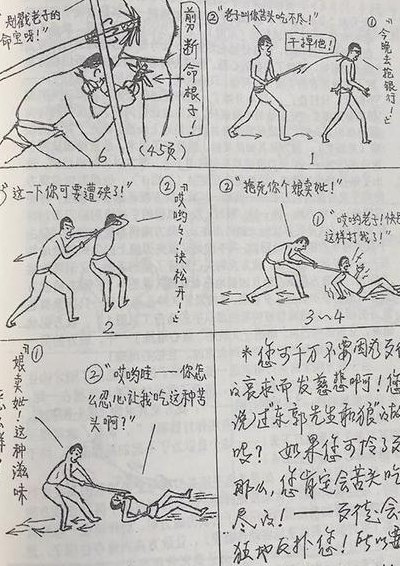 别戳老子的
命宝呀！"
剪断命根子！
6
(45页)
②"老子叫你苦头吃不尽！"
干掉他！
①
"今晚去抢银行！"
1
"这一下你可要遭殃了！"
②
"哎哟哟！快松开！"
2
②"拖死你个娘卖妣！"
①"哎哟老子！快
这样打我了！"
3～4
①
"娘卖妣！这种滋味
②"哎哟哇——你怎
么忍心让我吃这种苦
头啊？"
*您可千万不要因为歹
哀求而发慈悲啊！您
说过"东郭先生和狼"的故
吗？如果您可怜了歹
那么，您肯定会苦头吃
尽及！——歹徒会
狂地反扑您！所以